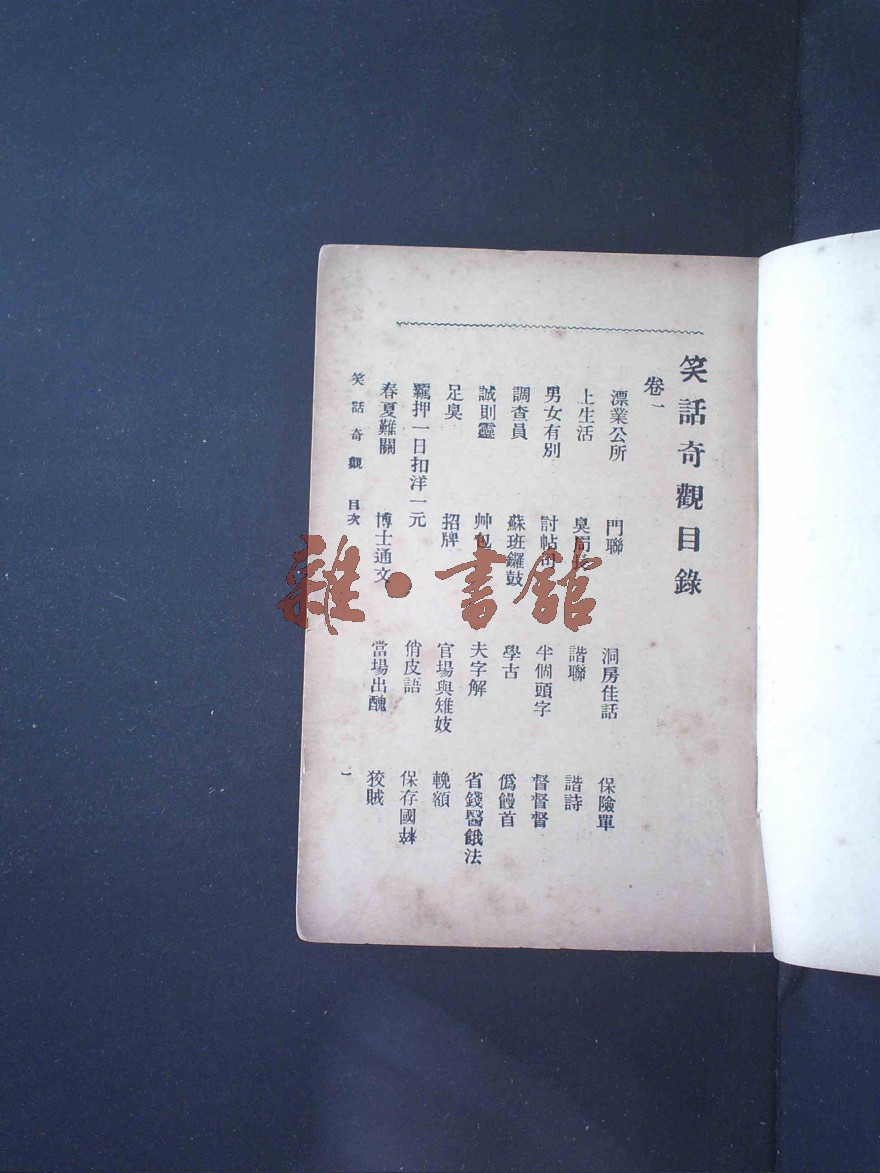 笑話奇觀目錄
卷一
漂業公所 門聯 洞房佳話 保險單
上生活 臭 諧聯 諧詩
男女有別 討帖 半個頭字 督督督
調查員 蘇班鑼鼓 學古 僞饅首
誠則靈 艸包 夫字解 省錢醫餓法
足臭 招牌 官場與雉妓 輓額
羈押一日扣洋一元 俏皮語 保存國粹
春夏難關 博士通文 當場出醜 狡賊
笑話奇觀 目次 一
雜·書館